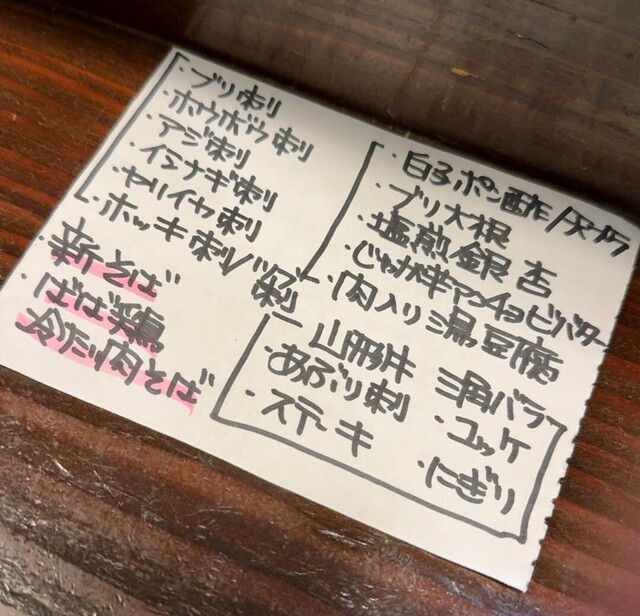 ・ブリ刺
・ホウボウ刺
・アジ刺
・イシナギ刺
・ヤリイカ刺
・ホッキ刺/バター
刺
・新そば
・ばば鶏
冷たい肉そば
・白子ポン酢/天ぷら
・ブリ大根
・塩煎銀杏
・じゃが芋アンチョビバター
・肉入り湯豆腐
山形牛 三角バラ
・あぶり刺 ・ユッケ
・ステーキ ・にぎり